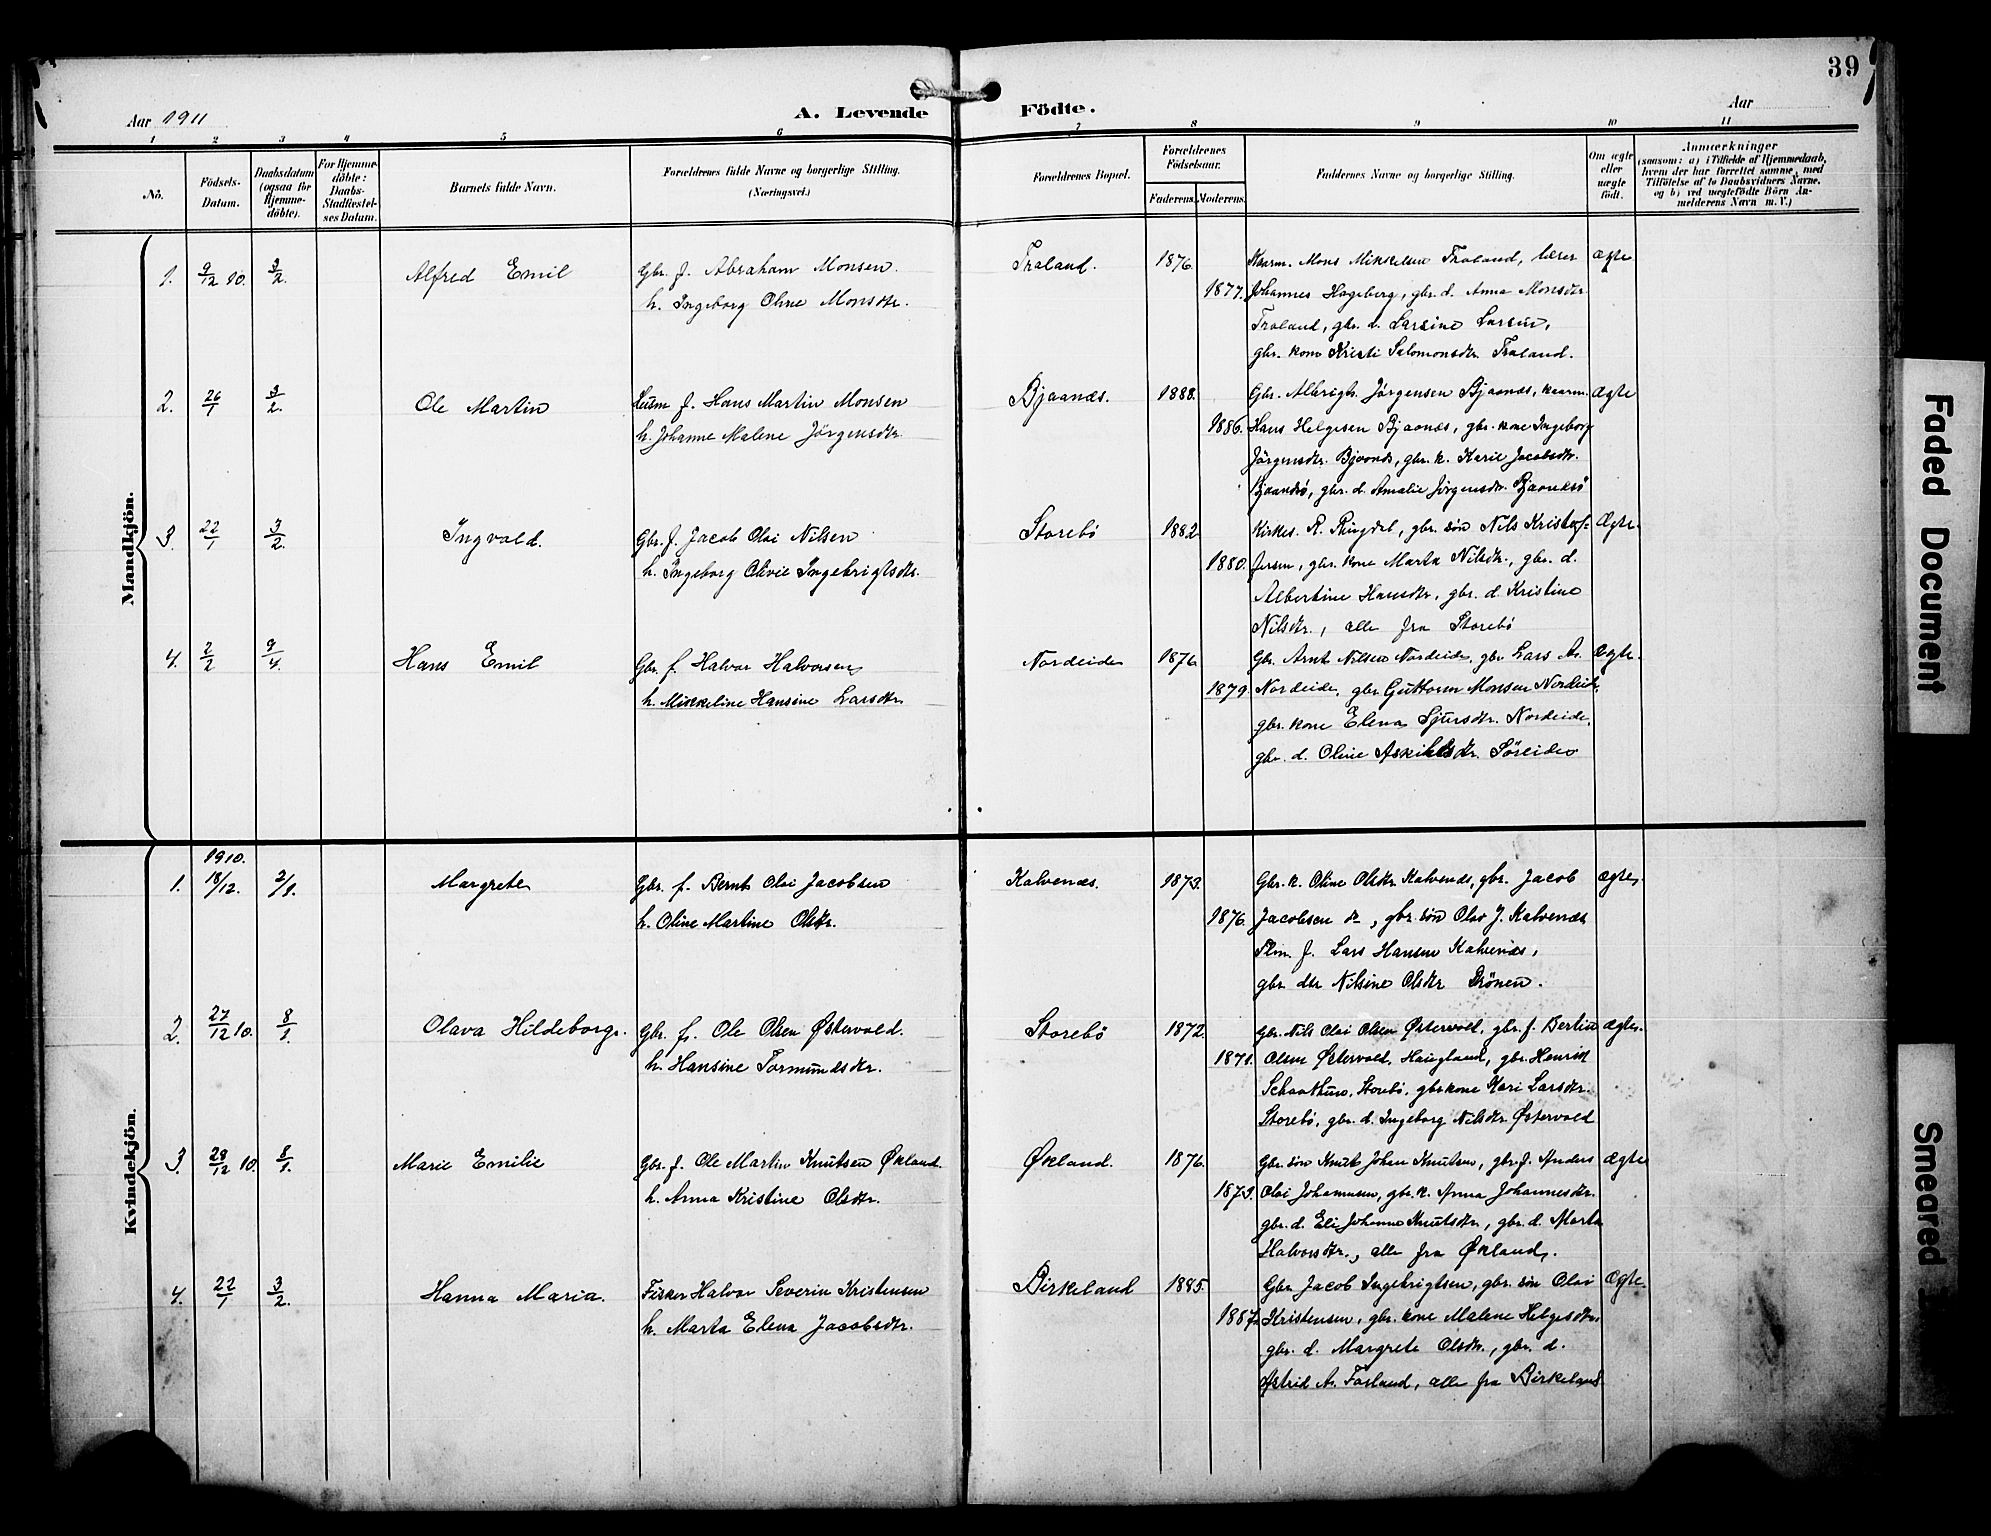 39
Aar 1911
A. Levende Födte.
Aar
1 2 3 4 5 6 7 8 9 10 11
No.
Födsels-Datum.
Daabsdatum (ogsaa for Hjemme-döbte).
For Hjemme-döbte: Daabs-Stadfæstel-ses Datum.
Barnets fulde Navn.
Forældrenes fulde Navne og borgerlige Stilling. (Næringsvei.)
Forældrenes Bopæl.
Forældrenes Födselsaar.
Faderens. Moderens.
Faddernes Navne og borgerlige Stilling.
Om ægte eller uægte født.
Anmærkninger
(saasom: a) i Tilfælde af Hjemmedaab, hvem der har forrettet samme, med Tilföielse af to Daabsvidners Navne, og b) ved uægtefödte Börn An-melderens Navn m. V.)
Mandkjön.
1. 9/12 10. 3/2. Alfred Emil Gbr. f. Abraham Monsen. Træland. 1876. Kaarm. Mons Mikkelsen Træland, lærer Ægte
h. Ingeborg Oline Monsdtr. 1877. Johannes Hageberg, gbr. d. Anna Monsdtr
Træland, gbr. d. Larsine Larsen,
gbr. kone Kristi Salomonsdtr. Træland.
2. 26/1 3/2. Ole Martin Leum f. Hans Martin Monsen Bjaanæs. 1888. Gbr. Albrigt Jørgensen Bjaanæs, kaarm. Ægte
h. Johanne Malene Jörgensdtr. 1886. Hans Helgesen Bjaanæs, gbr. kone Ingeborg
Jörgensdtr. Bjaanæs, gbr. k. Karie Jacobsdtr.
Bjaanæsö, gbr. d. Amalie Jörgensdtr. Bjaanæsö
3. 22/1 3/2. Ingvald. Gbr. f. Jacob Olai Nilsen Storebö 1882 Kirkes. R. Ringdal, gbr. sön Nils Kristof- Ægte.
h. Ingeborg Olivie Ingebrigtsdtr. 1880. fersen, gbr. kone Marta Nilsdtr., gbr. d.
Albertine Hansdtr, gbr. d. Kristine
Nilsdtr., alle fra Storebö
4. 2/2 9/4. Hans Emil Gbr. f. Halvor Halvorsen Nordeide 1876 Gbr. Arnt Nilsen Nordeide, gbr Lars As. Ægte.
h. Mikkeline Hansine Larsdtr 1879. Nordeide, gbr Guttorm Monsen Nordeide,
gbr. kone Elena Sjursdtr. Nordeide,
gbr. d. Oline Askildsdtr. Söreide
Kvindekjön.
1910.
1. 18/12. 2/1. Margrete Gbr. f. Bernt Olai Jacobsen Kalvenæs. 1873. Gbr. k. Oline Olsdtr Kalvenæs, gbr. Jacob ægte.
h. Oline Martine Olsdtr. 1876. Jacobsen do, gbr. sön Olav J. Kalvenæs
f. Lars Hansen Kalvenæs,
gbr dtr Nilsine Olsdtr Drönen.
2. 27/12 10. 8/1. Olava Hildeborg. Gbr. f. Ole Olsen Østervold. Storebö 1872. Gbr. Nils Olai Olsen Østervold, gbr. f. Bertin ægte.
h. Hansine Tormundsdtr. 1871. Olsen Østervold, Haugland, gbr. Henrik
Schaathun, Storebö, gbr kone Kari Larsdtr.
Storebö, gbr. d. Ingeborg Nilsdtr Østervold
3. 28/12 10. 8/1. Marie Emilie Gbr. f. Ole Martin Knutsen Økland. Økland. 1876. Gbr. sön Knut Johan Knutsen, gbr. f. Anders ægte
h. Anna Kristine Olsdtr. 1873. Olai Johannesen, gbr. k. Anna Johannesdtr.
gbr. d. Eli Johanne Knutsdtr., gbr. d. Marta
Halvorsdtr., alle fra Økland.
4. 22/1 3/2. Hanna Maria. Fisker Halvor Severin Kristensen Birkeland 1885. Gbr Jacob Ingebrigtsen, gbr. sön Olai Ægte
h. Marta Elena Jacobsdtr. 1887. Kristensen, gbr. kone Malene Helgesdtr,
gbr. d. Margrete Olsdtr., gbr. d.
Astrid A. Forland, alle fra Birkeland
Faded Document
Smeared